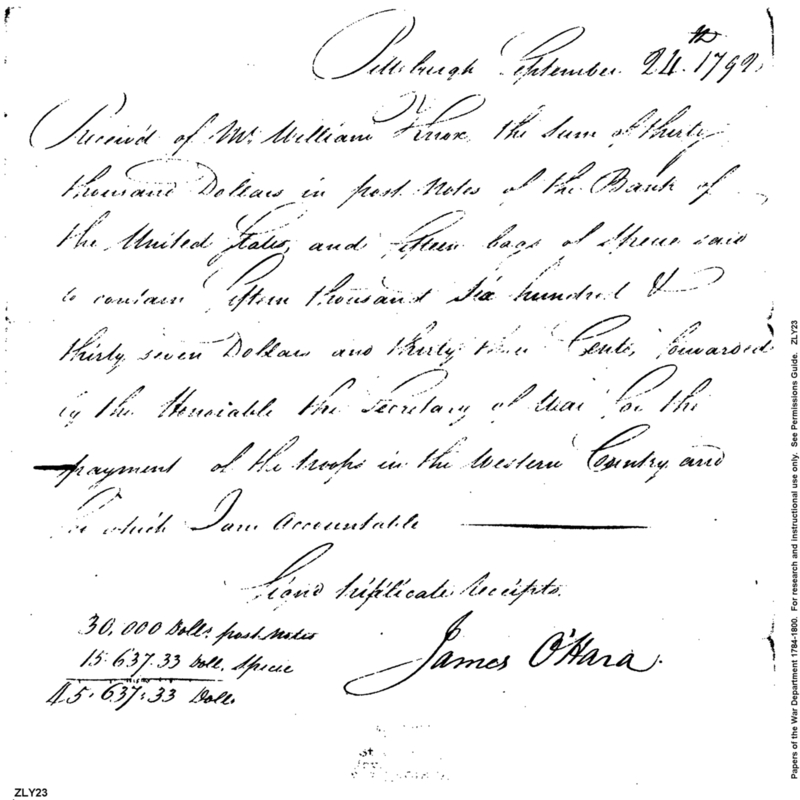 Pittsburgh September 24th 1792.
Received of Mr. William Knox the sum of thirty
thousand Dollars in post Notes of the Bank of
the United States, and fifteen bags of Specie said
to contain fifteen thousand six hundred &
thirty seven Dollars and thirty three Cents, forwarded
by the Honorable the Secretary of War for the
payment of the troops in the Western Country and
for which I am Accountable
Signd triplicate Receipts.
30.000 Dolls post Notes
15.637.33 Doll. Specie
45.637.33 Doll.
James O'Hara.
ZLY23
Papers of the War Department 1784-1800. For research and instructional use only. See Permissions Guide. ZLY23